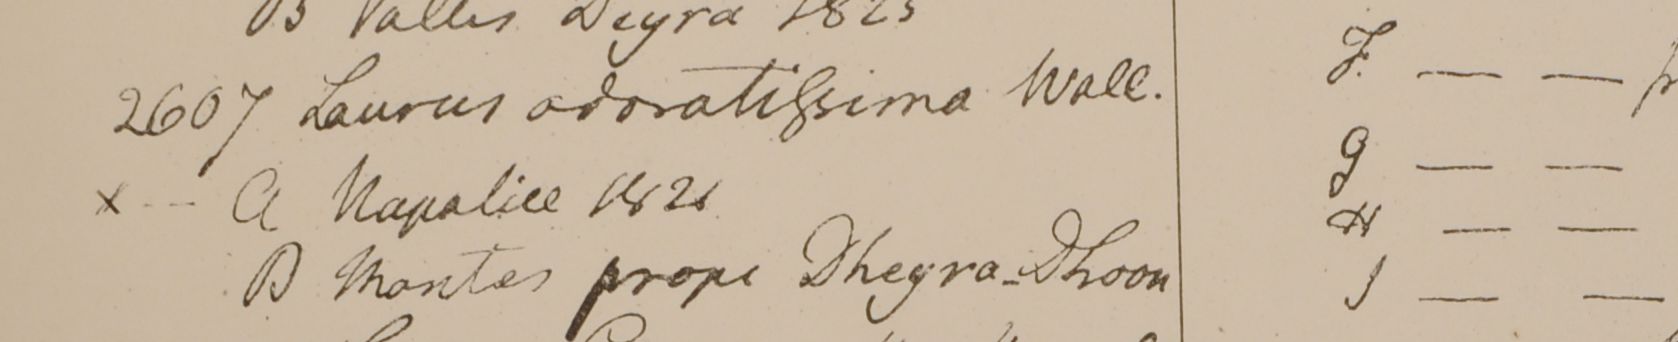 B Vallis Deyra 1825
2607 Laurus odoratissima Wall.
x -- a Napaliae 1821
B Montes prope Dheyra-Dhoon
F. — —
G — —
H — —
J — —